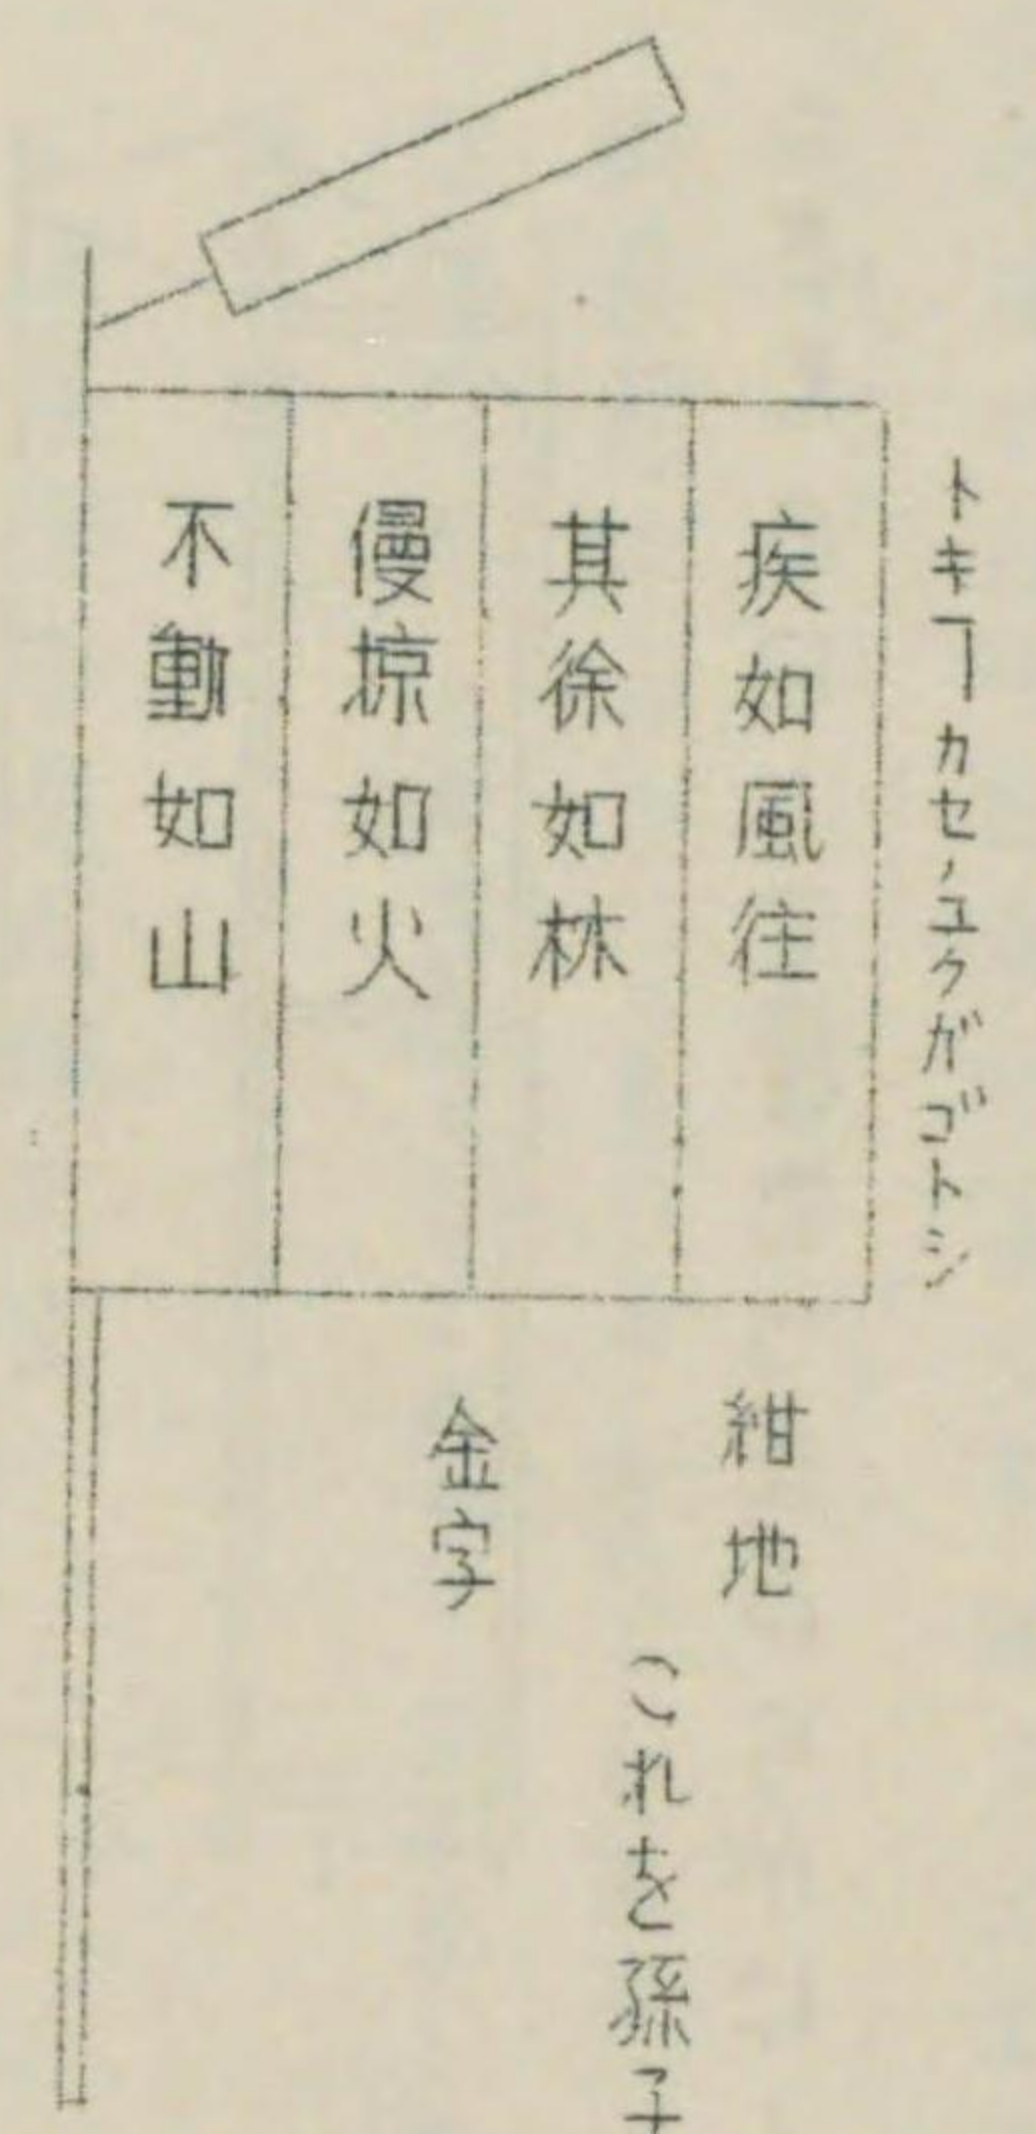 トキヿカセノユクガゴトシ
疾如風往
其徐如林
僈掠如火
不動如山
紺地
これを孫子
金字